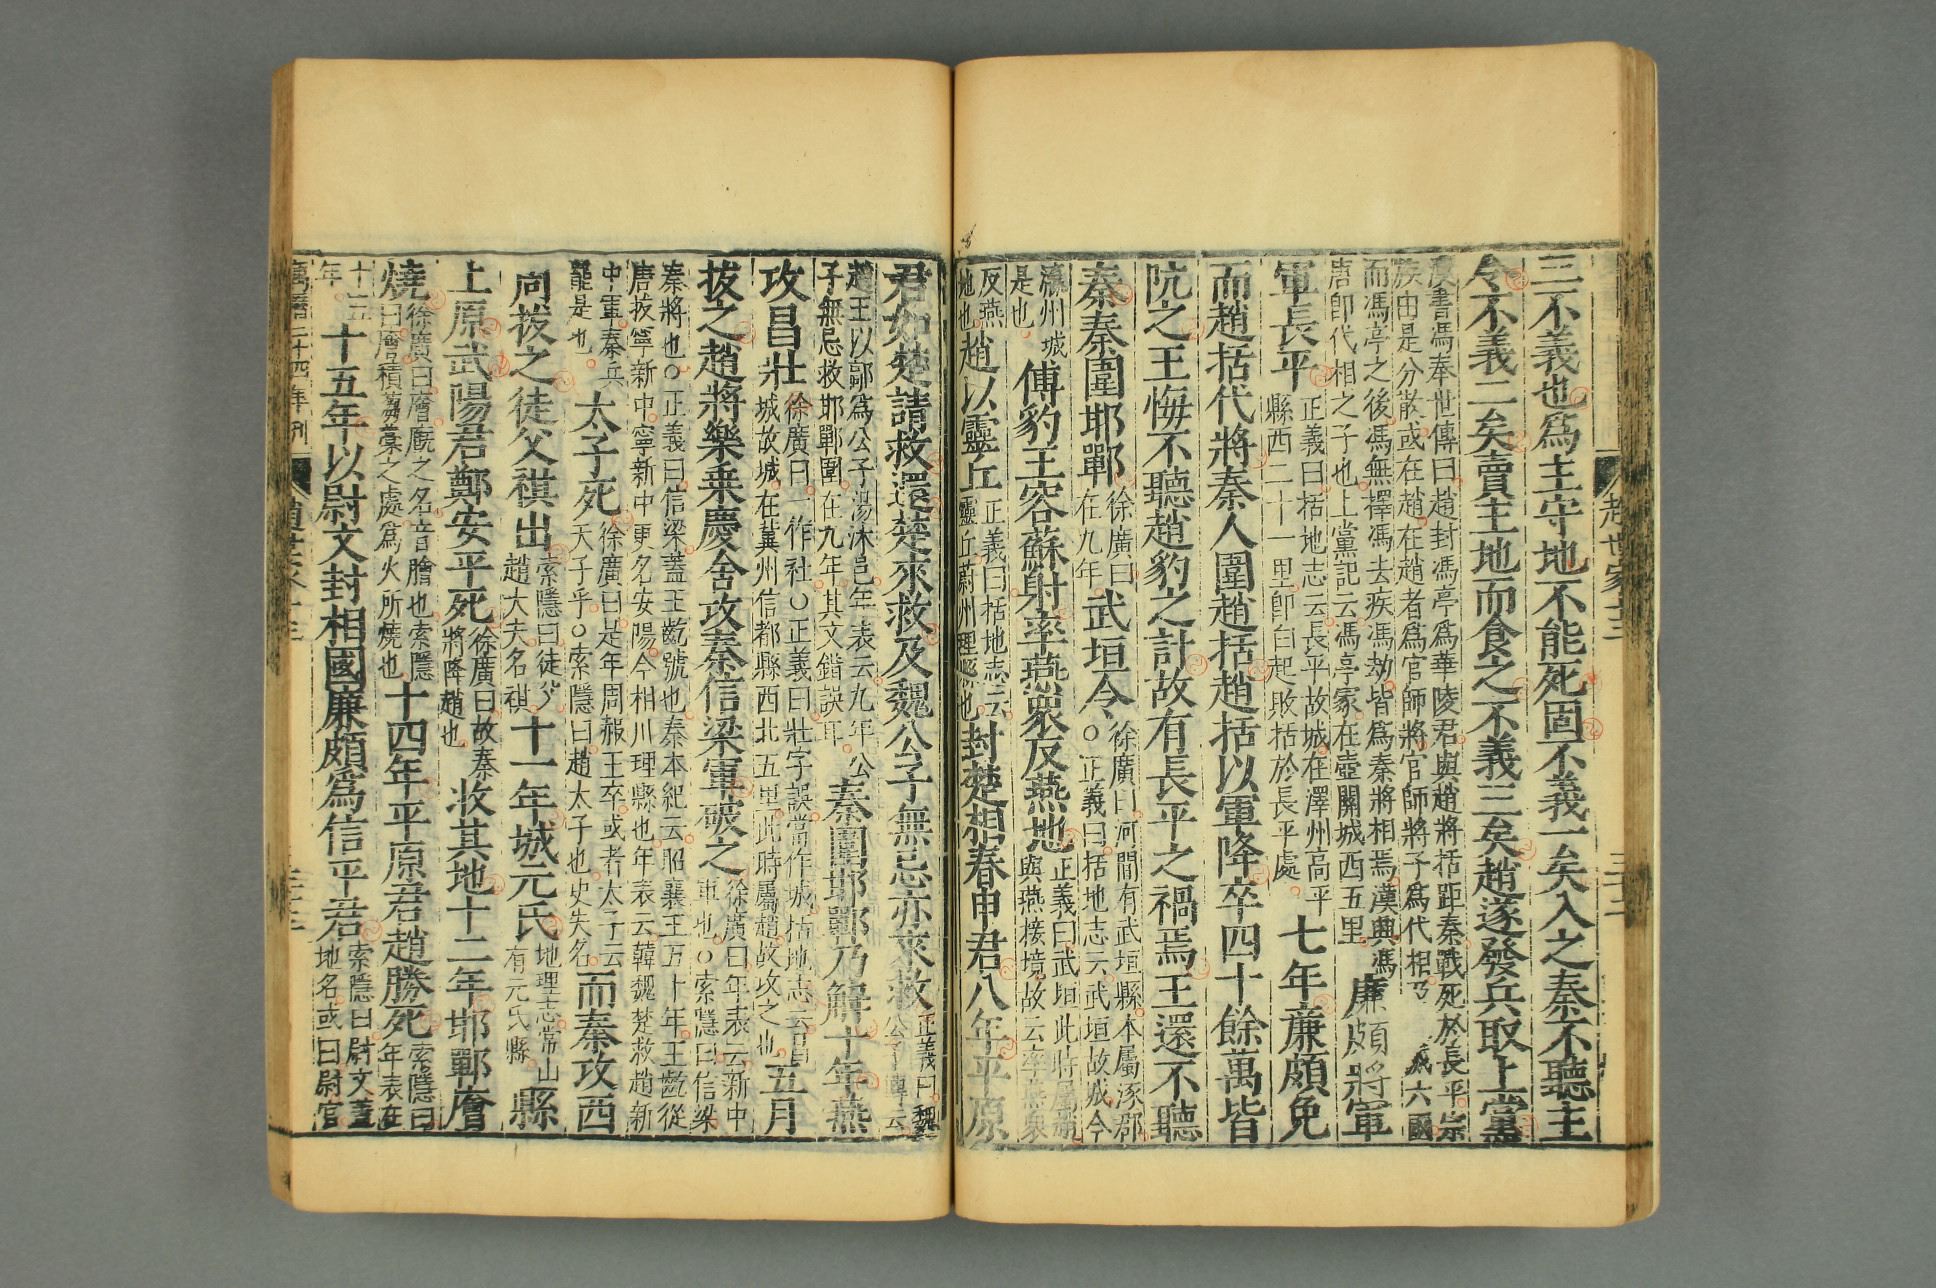 趙世家十三
三不義也爲主守地不能死固不義一矣入之秦不聽主
令不義二矣賣主地而食之不義三矣趙遂發兵取上黨
漢書馮奉世傳曰趙封馮亭爲華陵君與趙將括距秦戰死於長平宗
族由是分散或在趙在趙者爲官師將官師將子爲代相乃滅六國
而馮亭之後馮無擇馮去疾馮劫皆爲秦將相焉漢興馮
唐即代相之子也上黨記云馮亭家在壺關城西五里
廉頗將軍
軍長平正義曰括地志云長平故城在澤州高平縣西二十一里即白起敗括於長平處七年廉頗免
而趙括代將秦人圍趙括趙括以軍降卒四十餘萬皆
阬之王悔不聽趙豹之計故有長平之禍焉王還不聽
秦秦圍邯鄲徐廣曰在九年武垣令徐廣曰河間有武垣縣本屬涿郡○正義曰括地志云武垣故城今
瀛州城是也傅豹王容蘇射率燕衆反燕地正義曰武垣此時屬趙與燕接境故云率燕衆
反燕地也趙以靈丘正義曰括地志云靈丘蔚州理縣也封楚相春申君八年平原
君如楚請救還楚來救及魏公子無忌亦來救正義曰魏公子傳云
趙王以鄗爲公子湯沐邑年表云九年公子無忌救邯鄲圍在九年其文錯誤耳秦圍邯鄲乃解十年燕
攻昌壯徐廣曰一作社○正義曰壯字誤當作城括地志云昌城故城在冀州信都縣西北五里此時屬趙故攻之也五月
拔之趙將樂乗慶舍攻秦信梁軍破之徐廣曰年表云新中軍也○索隱曰信梁
秦將也○正義曰信梁蓋王齕號也秦本紀云昭襄王五十年王齕從
唐拔寧新中寧新中更名安陽今相川理縣也年表云韓魏楚救趙新
中軍秦兵罷是也太子死徐廣曰是年周赧王卒或者太子云天子乎○索隱曰趙太子也史失名而秦攻西
周拔之徒父祺出索隱曰徒父趙大夫名祺十一年城元氏地理志常山有元氏縣縣
上原武陽君鄭安平死徐廣曰故秦將降趙也收其地十二年邯鄲廥
燒徐廣曰廥廐之名音膾也索隱曰廥積芻藁之處爲火所燒也十四年平原君趙勝死索隱曰年表在
十五年十五年以尉文封相國廉頗爲信平君索隱曰尉文蓋地名或曰尉官
萬曆二十四年刊
趙世家十三
三十三